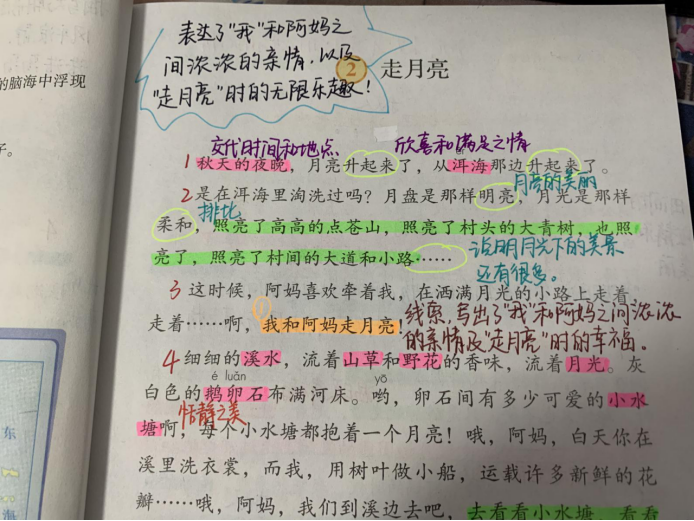 的脑海中浮现
子。
表达了"我"和阿妈之
间浓浓的亲情,以及
"走月亮"时的无限乐趣!
2 走月亮
交代时间和地点
欣喜和满足之情
1秋天的夜晚,月亮升起来了,从洱海那边升起来了。
月亮的美丽
2是在洱海里淘洗过吗?月盘是那样明亮,月光是那样
排比
柔和,照亮了高高的点苍山,照亮了村头的大青树,也照
亮了,照亮了村间的大道和小路……
说明月光下的美景
还有很多。
3这时候,阿妈喜欢牵着我,在洒满月光的小路上走着
走着……啊,我和阿妈走月亮!
①
线索,写出了"我"和阿妈之间浓浓
的亲情及"走月亮"时的幸福。
4细细的溪水,流着山草和野花的香味,流着月光。灰
é luǎn
yō
白色的鹅卵石布满河床。哟,卵石间有多少可爱的小水
恬静之美
塘啊,每个小水塘都抱着一个月亮!哦,阿妈,白天你在
溪里洗衣裳,而我,用树叶做小船,运载许多新鲜的花
瓣……哦,阿妈,我们到溪边去吧,去看看小水塘,看看
东
海